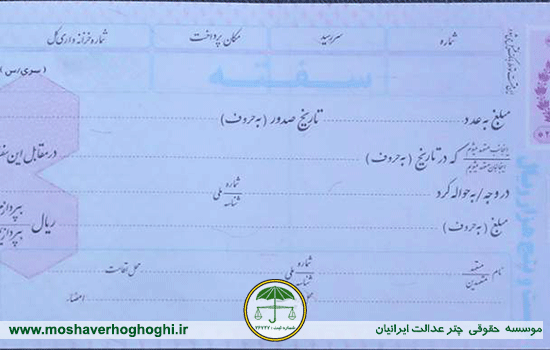 شماره سررسید مکان پرداخت شماره خزانه داری کل
(سری/س
سفته
مبلغ به عدد تاریخ صدور (به حروف)
اینجانب متعهد می‌شوم که در تاریخ (به حروف) در مقابل این سفته
اینجانبان متعهد می‌شویم
در وجه/به حواله کرد شماره ملی
شناسه
مبلغ (به حروف) ریال بپردازم
بپردازیم
نام متعهد شماره ملی محل اقامت
متعهدین شناسه
امضاء
شماره ثبت: ۳۶۷۴۷
موسسه حقوقی چتر عدالت ایرانیان
www.moshaverhoghoghi.ir